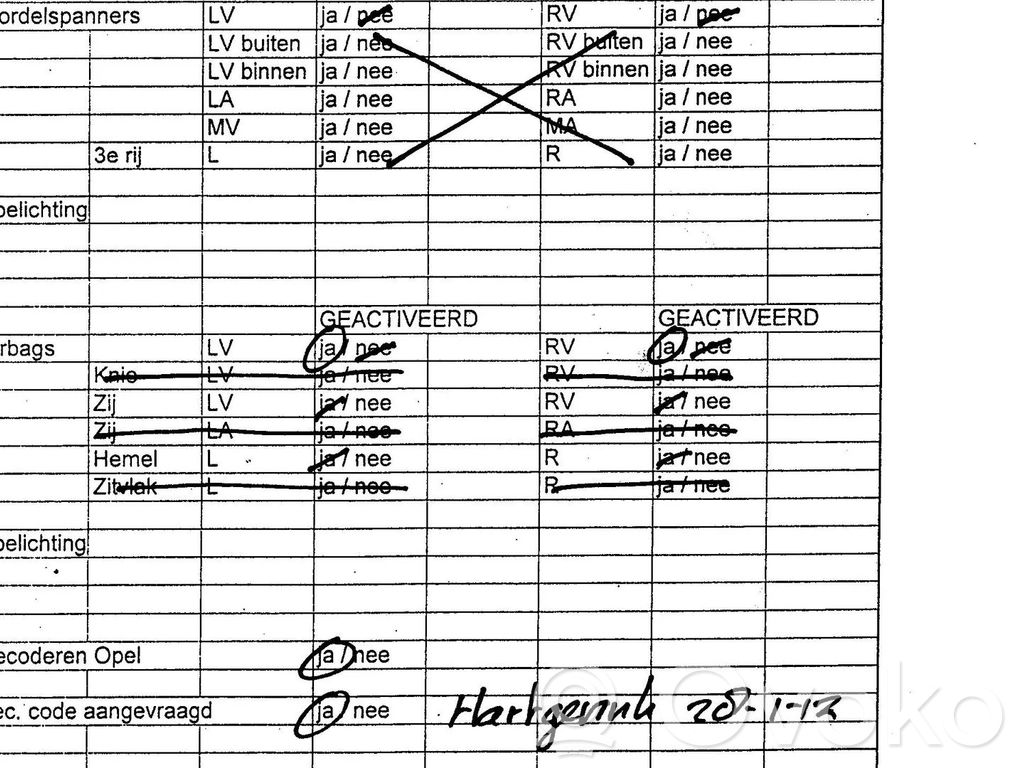 ordelspanners LV ja / nee RV ja / nee
LV buiten ja / nee RV buiten ja / nee
LV binnen ja / nee RV binnen ja / nee
LA ja / nee RA ja / nee
MV ja / nee MA ja / nee
3e rij L ja / nee R ja / nee
oelichting
GEACTIVEERD GEACTIVEERD
rbags LV ja / nee RV ja / nee
Knie LV ja / nee RV ja / nee
Zij LV ja / nee RV ja / nee
Zij LA ja / nee RA ja / nee
Hemel L ja / nee R ja / nee
Zitvlak L ja / nee R ja / nee
oelichting
ecoderen Opel ja / nee
ec. code aangevraagd ja / nee 28-1-13
Ovoko